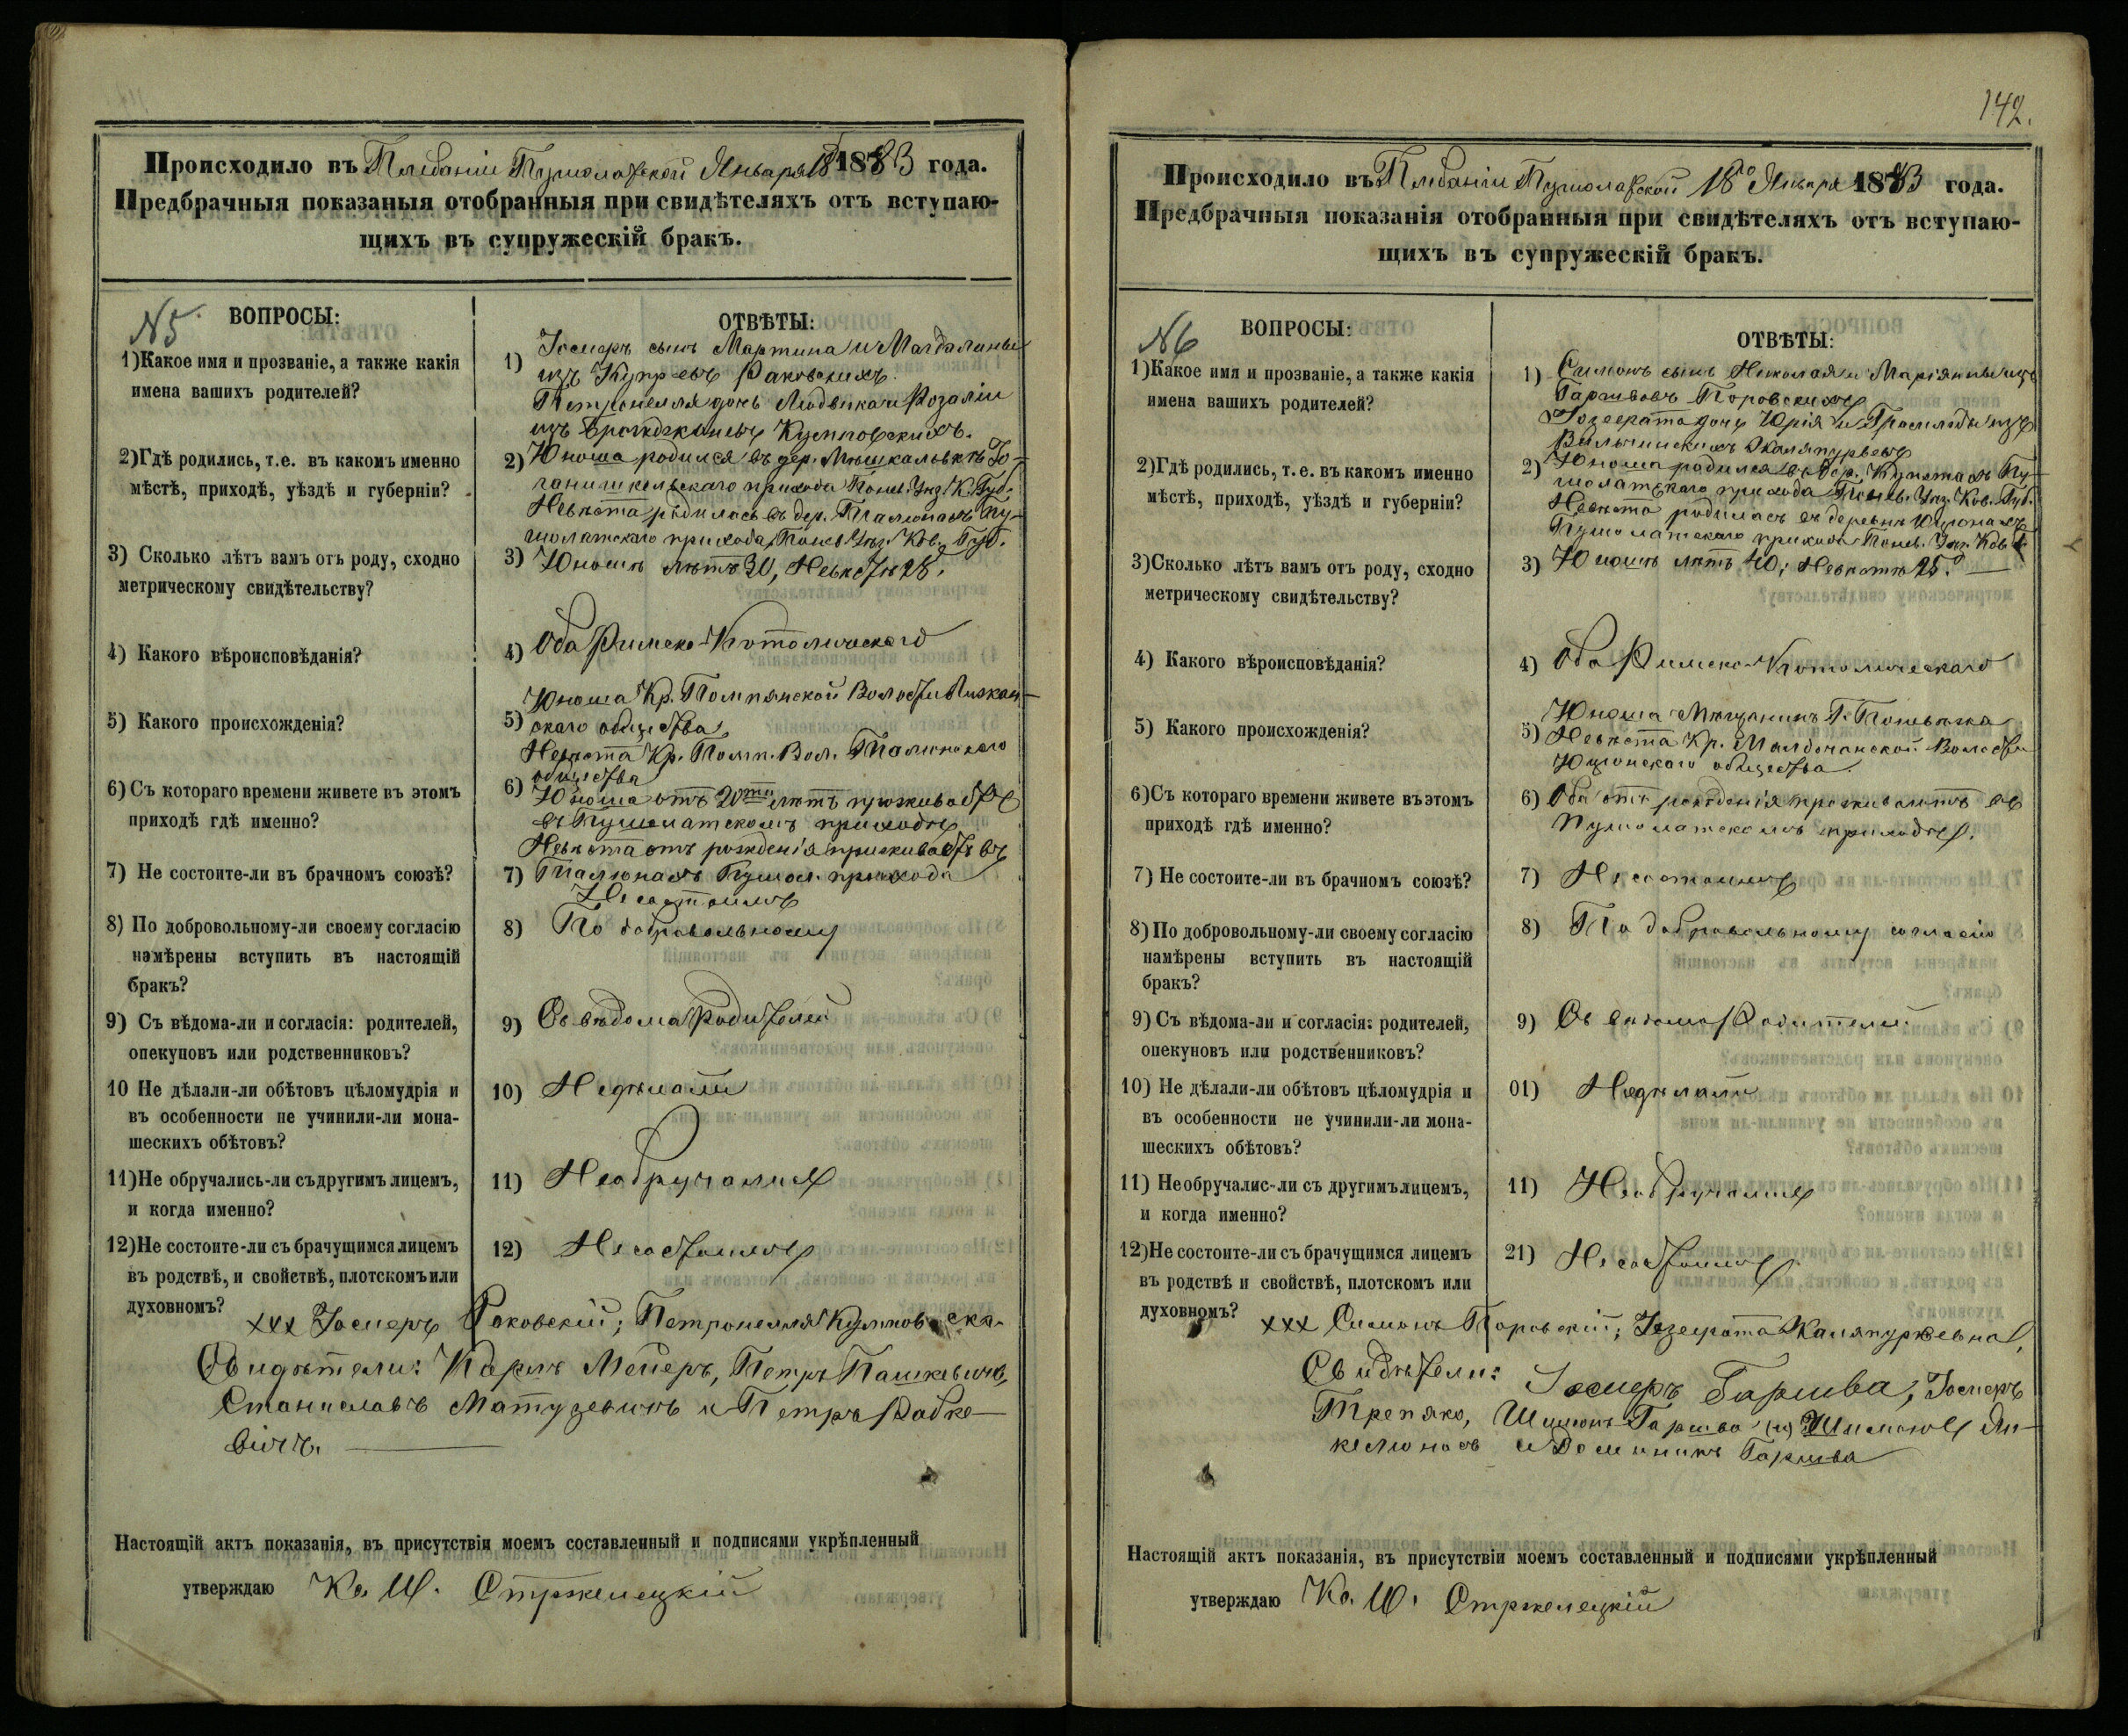 Происходило въ Плебаніи Пушолатской Января 18 1883 года.
Предбрачныя показаныя отобранныя при свидѣтеляхъ отъ вступаю-
щихъ въ супружескій бракъ.
N5
ВОПРОСЫ:
1) Какое имя и прозваніе, а также какія
имена вашихъ родителей?
2) Гдѣ родились, т.е. въ какомъ именно
мѣстѣ, приходѣ, уѣздѣ и губерніи?
3) Сколько лѣтъ вамъ отъ роду, сходно
метрическому свидѣтельству?
4) Какого вѣроисповѣданія?
5) Какого происхожденія?
6) Съ котораго времени живете въ этомъ
приходѣ гдѣ именно?
7) Не состоите-ли въ брачномъ союзѣ?
8) По добровольному-ли своему согласію
намѣрены вступить въ настоящій
бракъ?
9) Съ вѣдома-ли и согласія: родителей,
опекуновъ или родственниковъ?
10 Не дѣлали-ли обѣтовъ цѣломудрія и
въ особенности не учинили-ли мона-
шескихъ обѣтовъ?
11) Не обручались-ли съ другимъ лицемъ,
и когда именно?
12) Не состоите-ли съ брачущимся лицемъ
въ родствѣ, и свойствѣ, плотскомъ или
духовномъ?
ОТВѢТЫ:
1) Іосиеръ сынъ Мартина и Магдалины
изъ Купр евъ Раковскихъ.
Петронелля дочь Людвика и Розаліи
изъ Кулповскихъ.
2) Юноша родился въ дер. Мышкальвкѣ Іо-
ганишкельскаго прихода Понев. Уѣз. К. Губ.
Невѣста родилась въ дер.Талюнахъ Пу-
шолатскаго прихода, Понев Уѣз. Ков. Губ.
3) Юношѣ лѣтъ 30, Невѣстѣ 28.
4) Оба Римско-Католическаго
Юноша Кр. Помпянской Волости
5) скаго общества,
Невѣста Кр. Помп. Вол. Талюнскаго
общества
6) Юноша отъ 20ти лѣтъ проживаетъ
въ Пушолатскомъ приходѣ
Невѣста отъ рожденія проживаетъ въ
7) Талюнахъ Пушол. прихода
Не состоимъ
8) По добровольному
9) Съ вѣдома Родителей
10) Не дѣлали
11) Не обручались
12) Не состоимъ
xxx Іосиеръ Раковскій; Петронелля Кулповска.
Свидѣтели: Карлъ Мейеръ, Петръ Пашкевичъ,
Станиславъ Матузевичъ и Петръ Рабке-
вичъ.
Настоящій актъ показанія, въ присутствіи моемъ составленный и подписями укрѣпленный
утверждаю Кс. Ш. Стржелецкій
142.
Происходило въ Плебаніи Пушолатской 18го Января 1883 года.
Предбрачныя показанія отобранныя при свидѣтеляхъ отъ вступаю-
щихъ въ супружескій бракъ.
N6
ВОПРОСЫ:
1) Какое имя и прозваніе, а также какія
имена вашихъ родителей?
2) Гдѣ родились, т.е. въ какомъ именно
мѣстѣ, приходѣ, уѣздѣ и губерніи?
3) Сколько лѣтъ вамъ отъ роду, сходно
метрическому свидѣтельству?
4) Какого вѣроисповѣданія?
5) Какого происхожденія?
6) Съ котораго времени живете въ этомъ
приходѣ гдѣ именно?
7) Не состоите-ли въ брачномъ союзѣ?
8) По добровольному-ли своему согласію
намѣрены вступить въ настоящій
бракъ?
9) Съ вѣдома-ли и согласія: родителей,
опекуновъ или родственниковъ?
10) Не дѣлали-ли обѣтовъ цѣломудрія и
въ особенности не учинили-ли мона-
шескихъ обѣтовъ?
11) Не обручалис-ли съ другимъ лицемъ,
и когда именно?
12) Не состоите-ли съ брачущимся лицемъ
въ родствѣ и свойствѣ, плотскомъ или
духовномъ?
ОТВѢТЫ:
1) Симонъ сынъ Николая и Маріянны изъ
Гаршвовъ Поровскихъ
Іозефата дочь Юрія и изъ
Вильчинскихъ Жаляпурвевъ
2) Юноша родился въ дер. Пу-
шолатскаго прихода Понев. Уѣз. Ков. Губ.
Невѣста родилась въ деревнѣ Юцюнахъ
Пушолатскаго прихода Понев. Уѣз. Ков.
3) Юношѣ лѣтъ 40; Невѣстѣ 25.
4) Оба Римско-Католическаго
Юноша Мѣщанинъ Г. Поневѣжа
5) Невѣста Кр. Волости
Юцюнскаго общества.
6) Оба отъ рожденія проживаютъ въ
Пушолатскомъ приходѣ.
7) Не состоимъ
8) По добровольному согласію
9) Съ вѣдома Родителей.
01) Не дѣлали
11) Не обручались
21) Не состоимъ
xxx Симонъ Поровскій; Іозефата Жаляпурвевна,
Свидѣтели: Іосиеръ Гаршва, Іосиеръ
Трепяко, Шимонъ Гаршва (и) Шимонъ Ми-
келюнасъ и Доминикъ Гаршва
Настоящій актъ показанія, въ присутствіи моемъ составленный и подписями укрѣпленный
утверждаю Кс. Ш. Стржелецкій